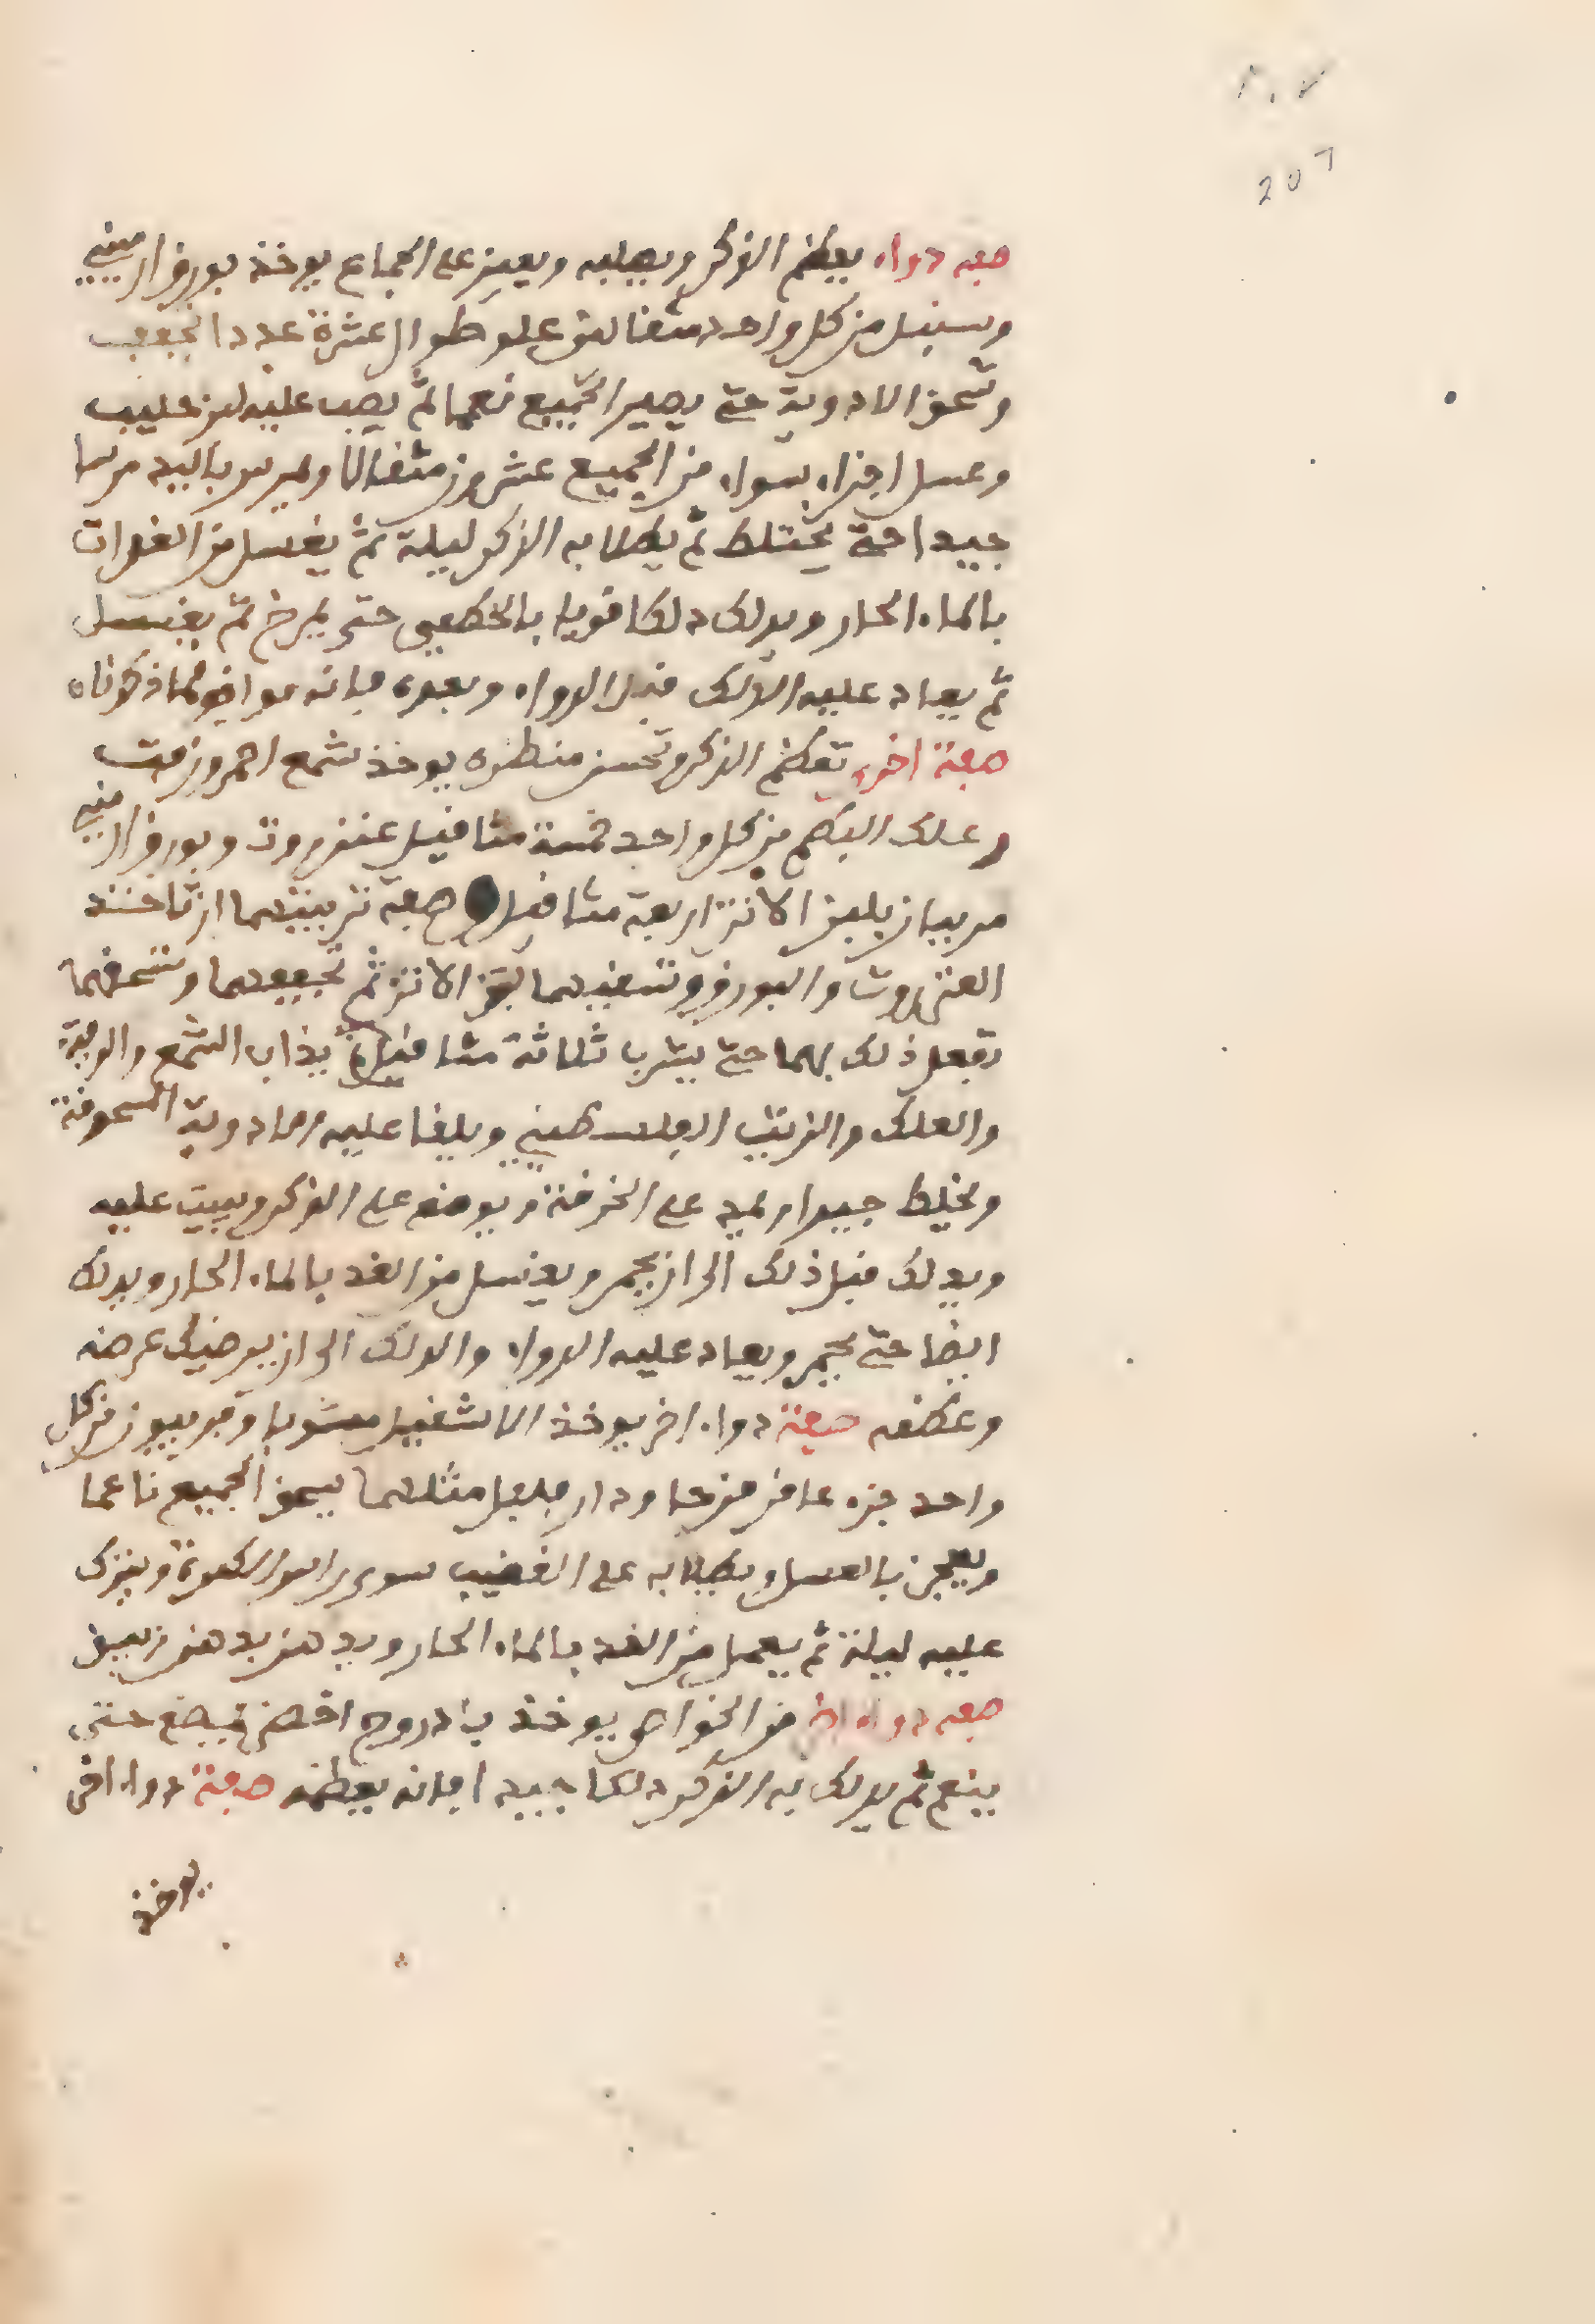 ٢٠٧
207
صفه دواء يعظم الذكر ويصلبه ويعين على الجماع يوخذ بورق ارميني
وسنبل من كل واحد مثقالين علو طوال عشرة عدد اتجفف
وتسحق الادوية حتى يصير الجميع ناعما ثم يصب عليه لبن حليب
وعسل اجزاء سواء من الجميع عشرين مثقالا ويمرس باليد مرسا
جيدا حتى يختلط ثم يطلا به الذكر ليلة ثم يغسل من الغدات
بالماء الحار ويدلك دلكا قويا بالخطمي حتى يمرخ ثم يغسل
ثم يعاد عليه الدلك قبل الدواء وبعده فانه موافق لما ذكرناه
صفة اخرى تعظم الذكر وتحسن منظره يوخذ شمع احمر وزفت
وعلك البطم من كل واحد خمسة مثاقيل عنزروت وبورق ارميني
مربيان بلبن الاتن اربعة مثاقيل وصفة تربيتهما ان تاخذ
العنزروت والبورق وتسقيهما بلبن الاتن ثم تجففهما وتسحقهما
تفعل ذلك بهما حتى يشربا ثلاثة مثاقيل يذاب الشمع والزفت
والعلك والزيت الفلسطيني ويلقا عليه الادوية المسحوقة
ويخلط جيدا ويمد على الخرقة ويوضع على الذكر ويبيت عليه
ويدلك قبل ذلك الى ان يحمر ويغسل من الغد بالماء الحار ويدلك
ايضا حتى يحمر ويعاد عليه الدواء والدلك الى ان يرضيك عرضه
وعظمه صفة دواء اخر يوخذ الاشقيل مشويا وفربيون من كل
واحد جزء عاقر قرحا ودار فلفل مثلهما يسحق الجميع ناعما
ويعجن بالعسل ويطلا به على القضيب سوى راس الكمرة ويترك
عليه ليلة ثم يغسل من الغد بالماء الحار ويدهن بدهن زنبق
صفه دواء اخر من الخواص يوخذ باذروج اخضر فيمضغ حتى
ينعم ثم يدلك به الذكر دلكا جيدا فانه يعظمه صفة دواء اخر
يوخذ